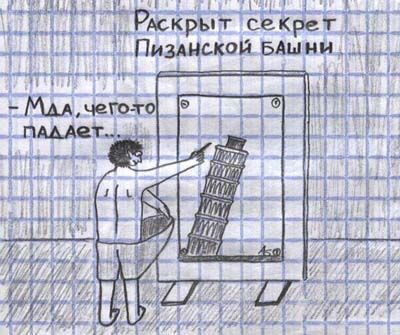 Раскрыт секрет
Пизанской башни
- Мда, чего-то
падает...